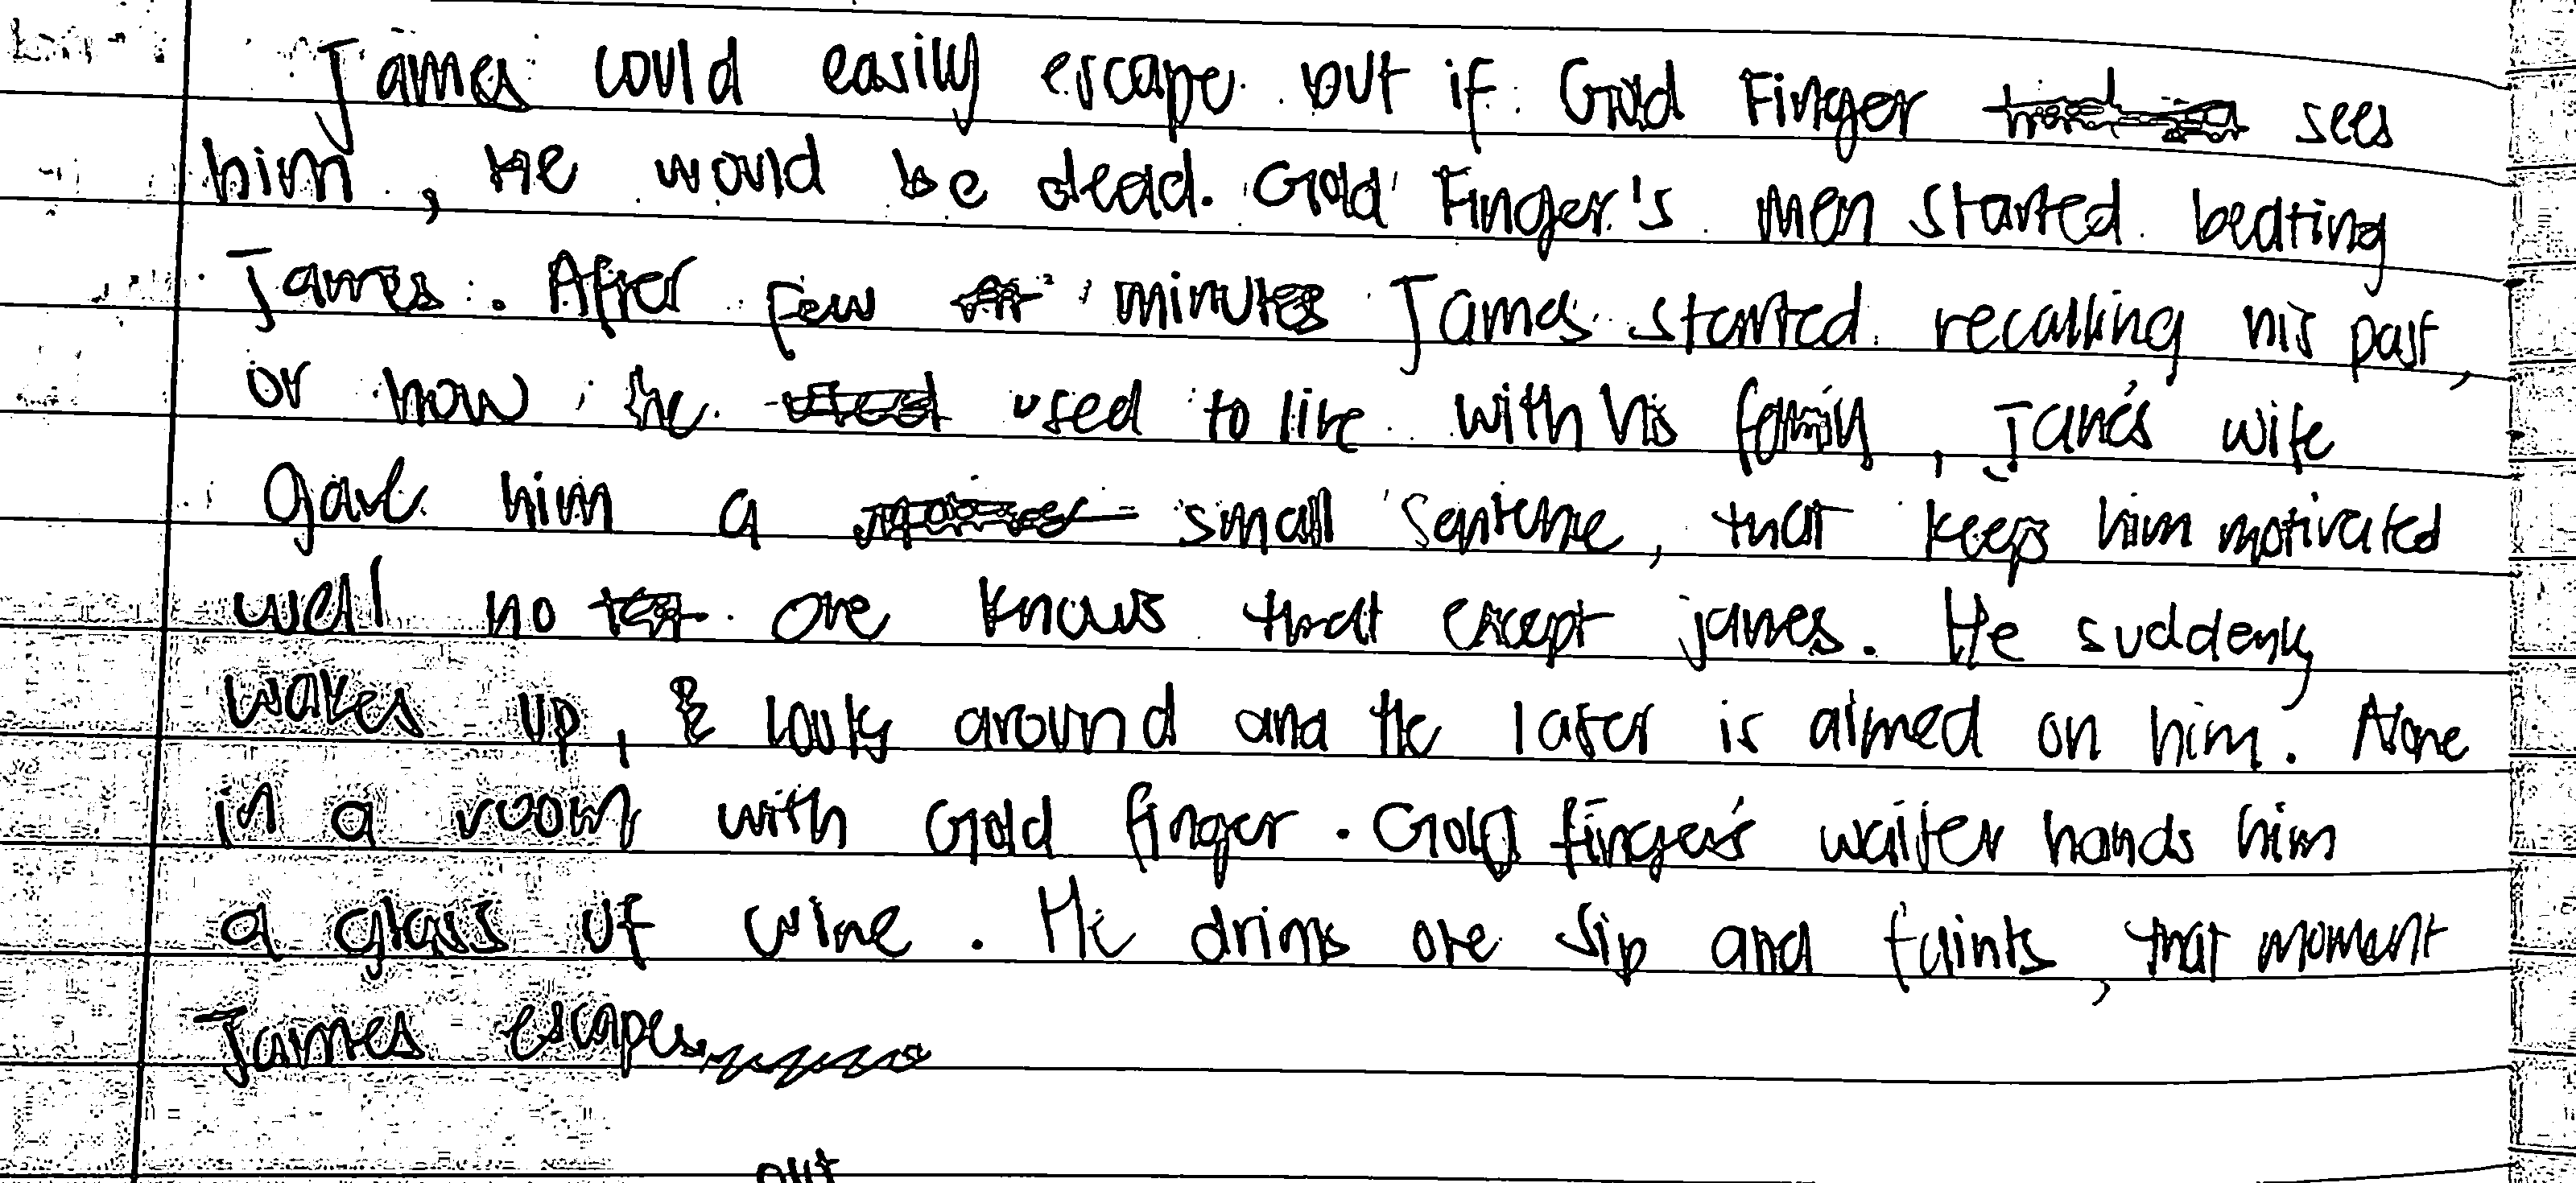 James could easily escape but if Gold Finger sees
him, He would be dead. Gold Finger's men started beating
James. After few minutes James started recalling his past,
or how he used to live with his family, Jame's wife
gave him a small sentence, that keeps him motivated
well no one knows that except james. He suddenly
wakes up, & looks around and the laser is aimed on him. Alone
in a room with Gold finger. Gold finger's waiter hands him
a glass of wine. He drinks one sip and faints, that moment
James escapes.
out